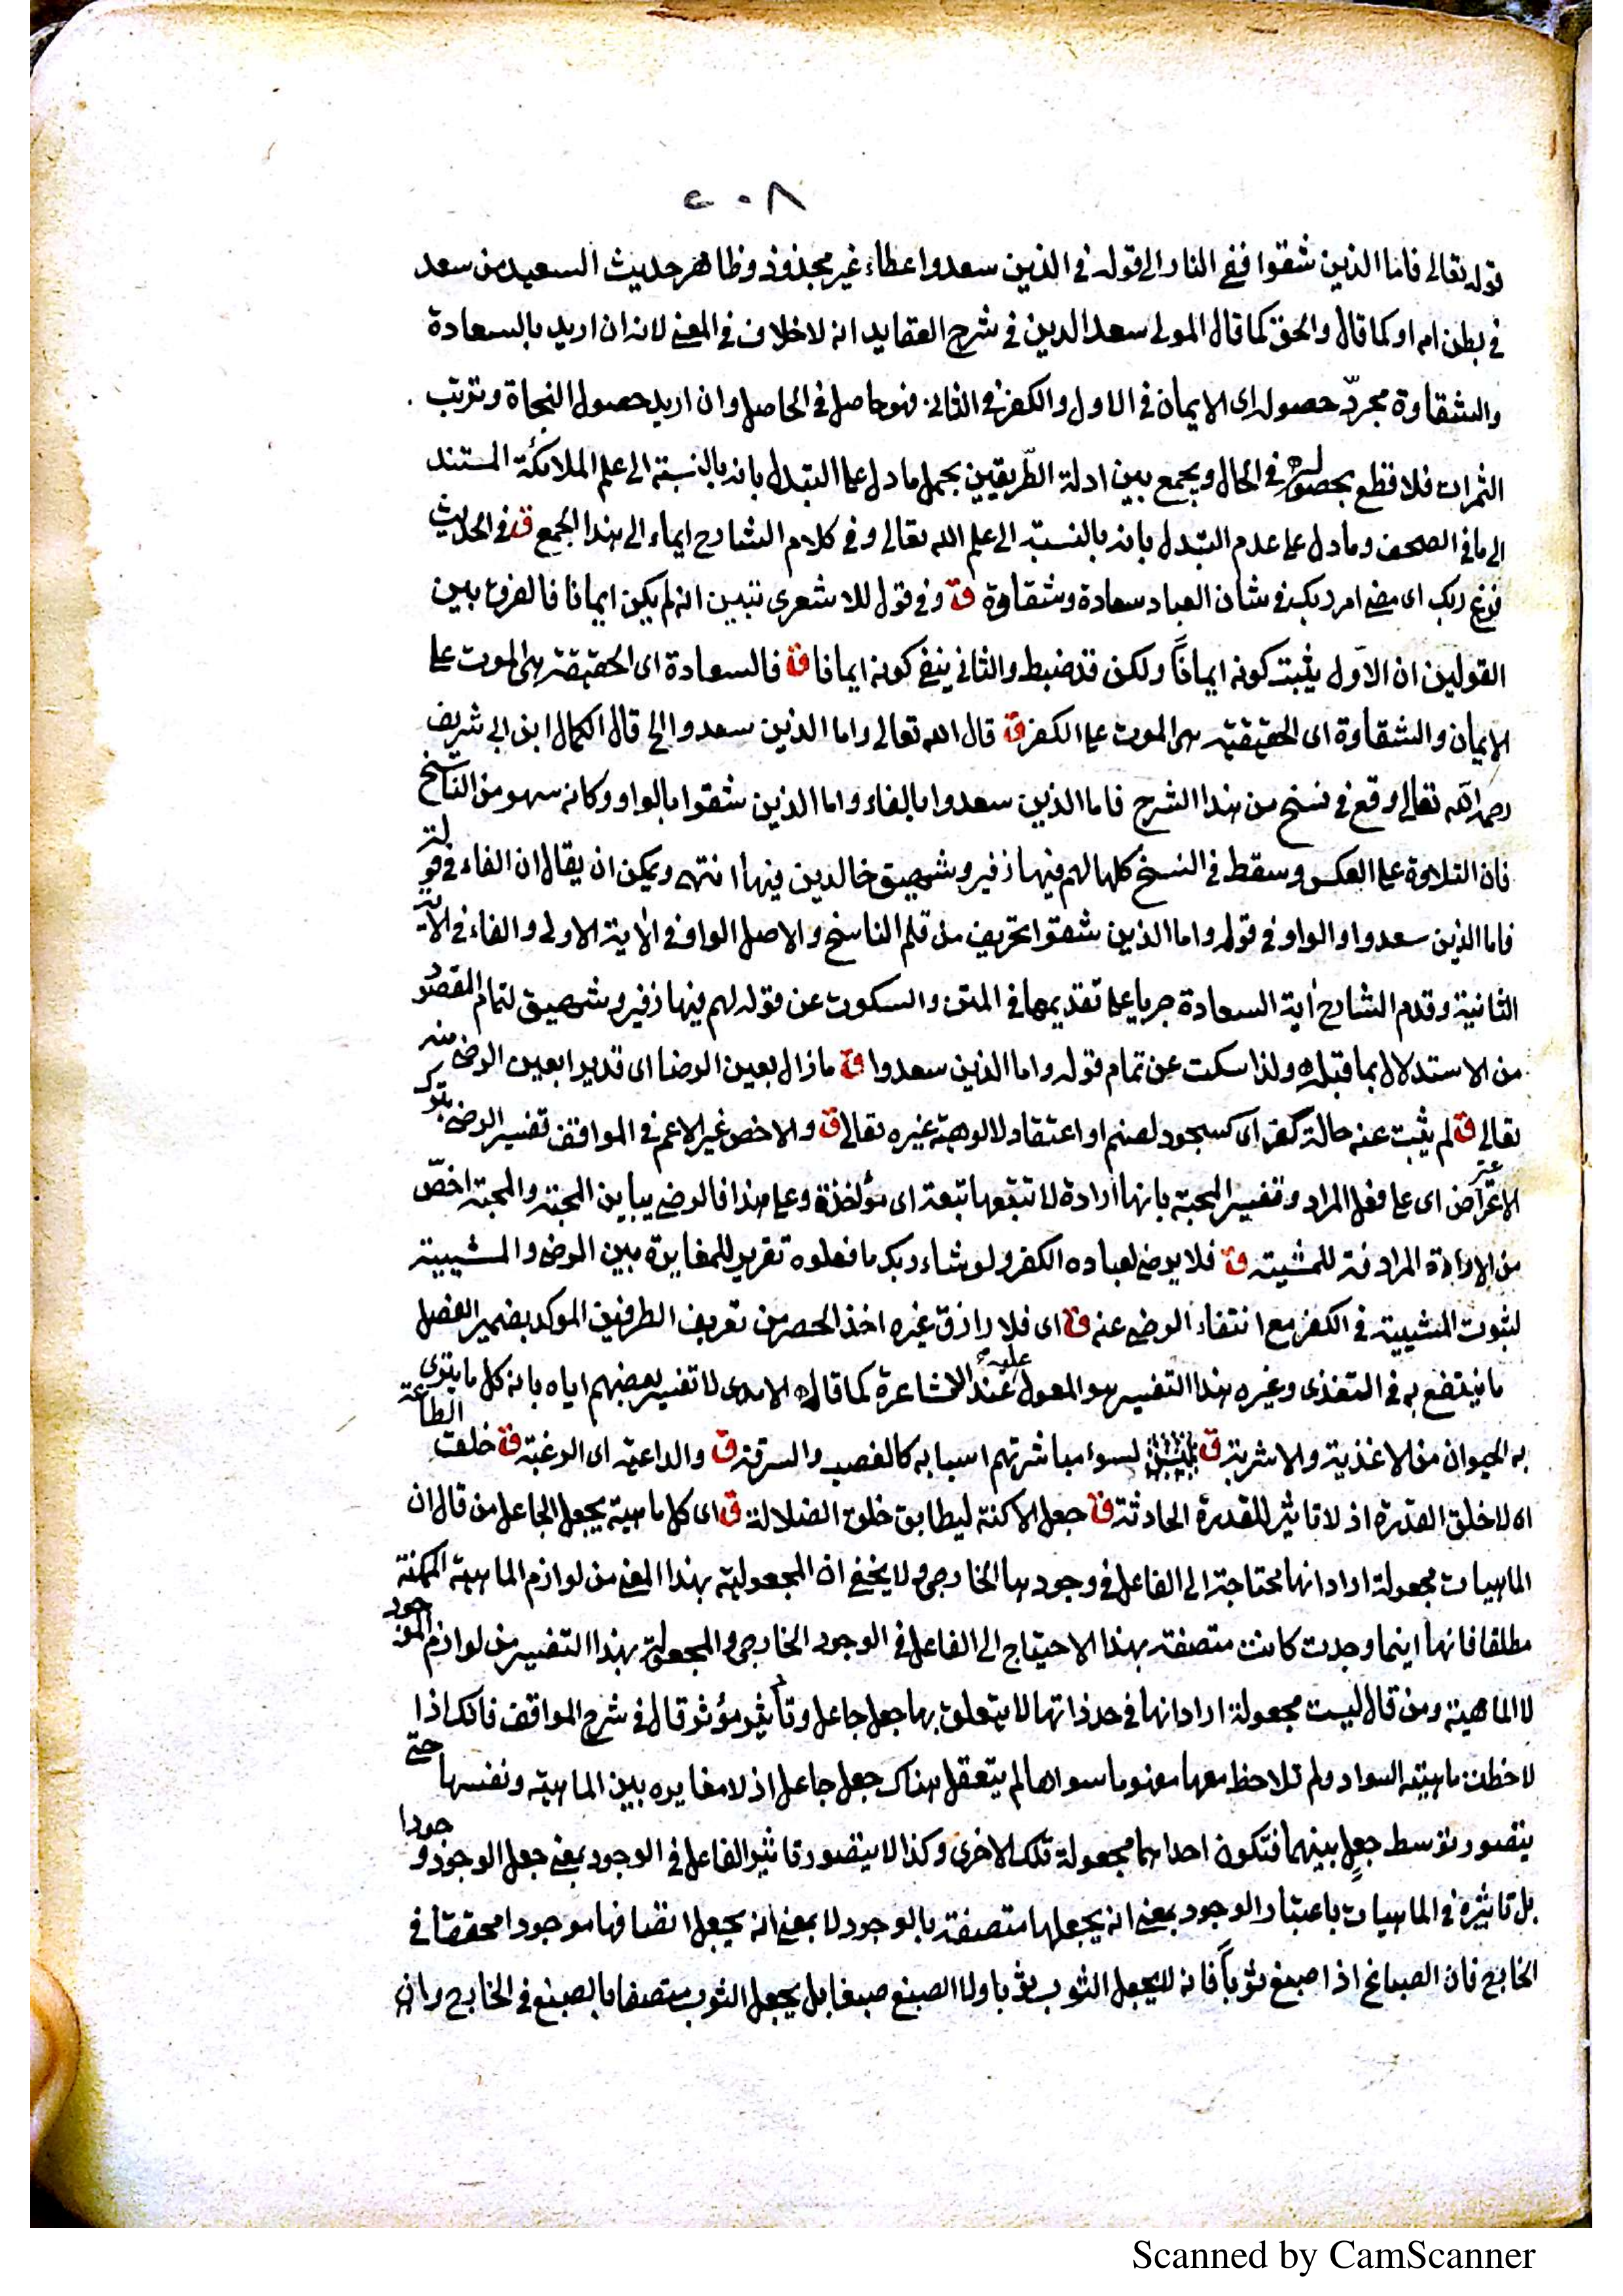 ٤٠٨
قوله تعالى فاما الذين شقوا ففى النار الى قوله فى الذين سعدوا عطاء غير مجذوذ وظاهر حديث السعيد من سعد
فى بطن امه او كما قال والحق كما قال المولى سعد الدين فى شرح العقايد انه لا خلاف فى المعنى لانه ان اريد بالسعادة
والشقاوة مجرّد حصوله اى الايمان فى الاول والكفر فى الثانى فهو حاصل فى الحاصل وان اريد حصول النجاة وترتب
الثمرات فلا قطع بحصوله فى الحال ويجمع بين ادلة الطّريقين بحمل ما دل على التبدل بانه بالنسبة الى علم الملائكة المستند
الى ما فى الصحف وما دل على عدم التبدل بانه بالنسبة الى علم الله تعالى وفى كلام الشارح ايماء الى هذا الجمع ق فى الحديث
فرغ ربك اى مضى امر ربك فى شان العباد سعادة وشقاوة ق وفى قول للاشعرى تبين انه لم يكن ايمانا فالفرق بين
القولين ان الاوّل يثبت كونه ايماناً ولكن قد ضبط والثانى ينفى كونه ايمانا ق فالسعادة اى الحقيقة هى الموت على
الايمان والشقاوة اى الحقيقية هى الموت على الكفر ق قال الله تعالى واما الذين سعدوا الخ قال الكمال ابن ابى شريف
رحمه الله تعالى وقع فى نسخ من هذا الشرح فاما الذين سعدوا بالفاء واما الذين شقوا بالواو وكانه سهو من الناسخ
فان التلاوة على العكس وسقط فى النسخ كلها لهم فيها زفير وشهيق خالدين فيها انتهى ويمكن ان يقال ان الفاء فى قوله
فاما الذين سعدوا والواو فى قوله واما الذين شقوا تحريف من قلم الناسخ والاصل الواو فى الاية الاولى والفاء فى الاية
الثانية وقدم الشارح اية السعادة جريا على تقديمها فى المتن والسكوت عن قوله لهم فيها زفير وشهيق لتمام المقصود
من الاستدلال بما قبله ولذا سكت عن تمام قوله واما الذين سعدوا ق ما زال بعين الرضا اى قديرا بعين الرضى منه
تعالى ق لم يثبت عنه حالة كفر اى كسجود لصنم او اعتقاد لالوهية غيره تعالى ق والاخص غير الاعم فى المواقف تفسير الرضى بترك
الاعتراض اى على فعل المراد وتفسير المحبة بانها ارادة لا تتبعها تبعة اى مؤاخذة وعلى هذا فالرضى يباين المحبة والمحبة اخصّ
من الارادة المرادفة للمشية ق فلا يرضى لعباده الكفر ولو شاء ربك ما فعلوه تقرير للمغايرة بين الرضى والمشيية
لثبوت المشيية فى الكفر مع انتفاء الرضى عنه ق اى فلا رازق غيره اخذ الحصر من تعريف الطرفين الموكد بضمير الفصل
ما ينتفع به فى التغذى وغيره هذا التفسير هو المعول عليه عند الاشاعرة كما قاله الامدى لا تفسير بعضهم اياه بانه كل ما يتقوى
به الحيوان من الاغذية والاشربة ق لسوا مباشرتهم اسبابه كالغصب والسرقة ق والداعية اى الرغبة ق خلقت الطاعة
اى لا خلق القدرة اذ لا تاثير للقدرة الحادثة ق جعل الاكنة ليطابق خلق الضلالة ق اى كل ماهية يجعل الجاعل من قال ان
الماهيات مجعولة اراد انها محتاجة الى الفاعل فى وجودها الخارجى ولا يخفى ان المجعولية بهذا المعنى من لوازم الماهية الممكنة
مطلقا فانها اينما وجدت كانت متصفة بهذا الاحتياج الى الفاعل فى الوجود الخارجى والمجعولية بهذا التفسير من لوازم الموجود
لا الماهية ومن قال ليست مجعولة اراد انها فى حد ذاتها لا يتعلق بها جعل جاعل وتأثير مؤثر قال فى شرح المواقف فانك اذا
لاحظت ماهية السواد ولم تلاحظ معها مفهوما سواها لم يتعقل هناك جعل جاعل اذ لا مغايره بين الماهية ونفسها حتى
يتصور توسط جعل بينهما فتكون احداهما مجعولة تلك الاخرى وكذا لا يتصور تاثير الفاعل فى الوجود بمعنى جعل الوجود وجودا
بل تاثيره فى الماهيات باعتبار الوجود بمعنى انه يجعلها متصفة بالوجود لا بمعنى انه يجعل اتصافها موجودا محققا فى
الخارج فان الصباغ اذا صبغ ثوباً فانه لا يجعل الثوب ثوبا ولا الصبغ صبغا بل يجعل الثوب متصفا بالصبغ فى الخارج وان
Scanned by CamScanner